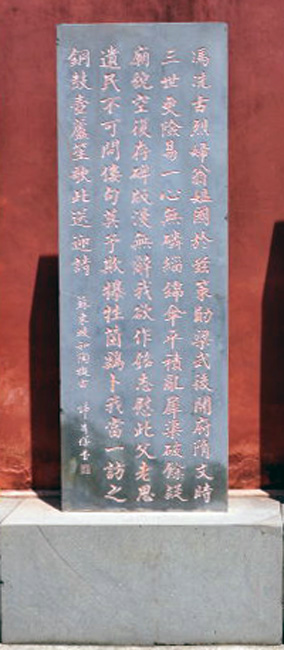 馮洗古烈婦翁媪國於兹策勛梁武後開府隋文時
三世更險易一心無磷緇錦傘平積亂犀渠破餘疑
廟貌空復存碑版漫無辭我欲作銘志慰此父老思
遺民不可問僂句莫予欺犦牲菌鷄卜我當一訪之
銅鼓壺盧笙歌此送迎詩
蘇東坡和陶擬古